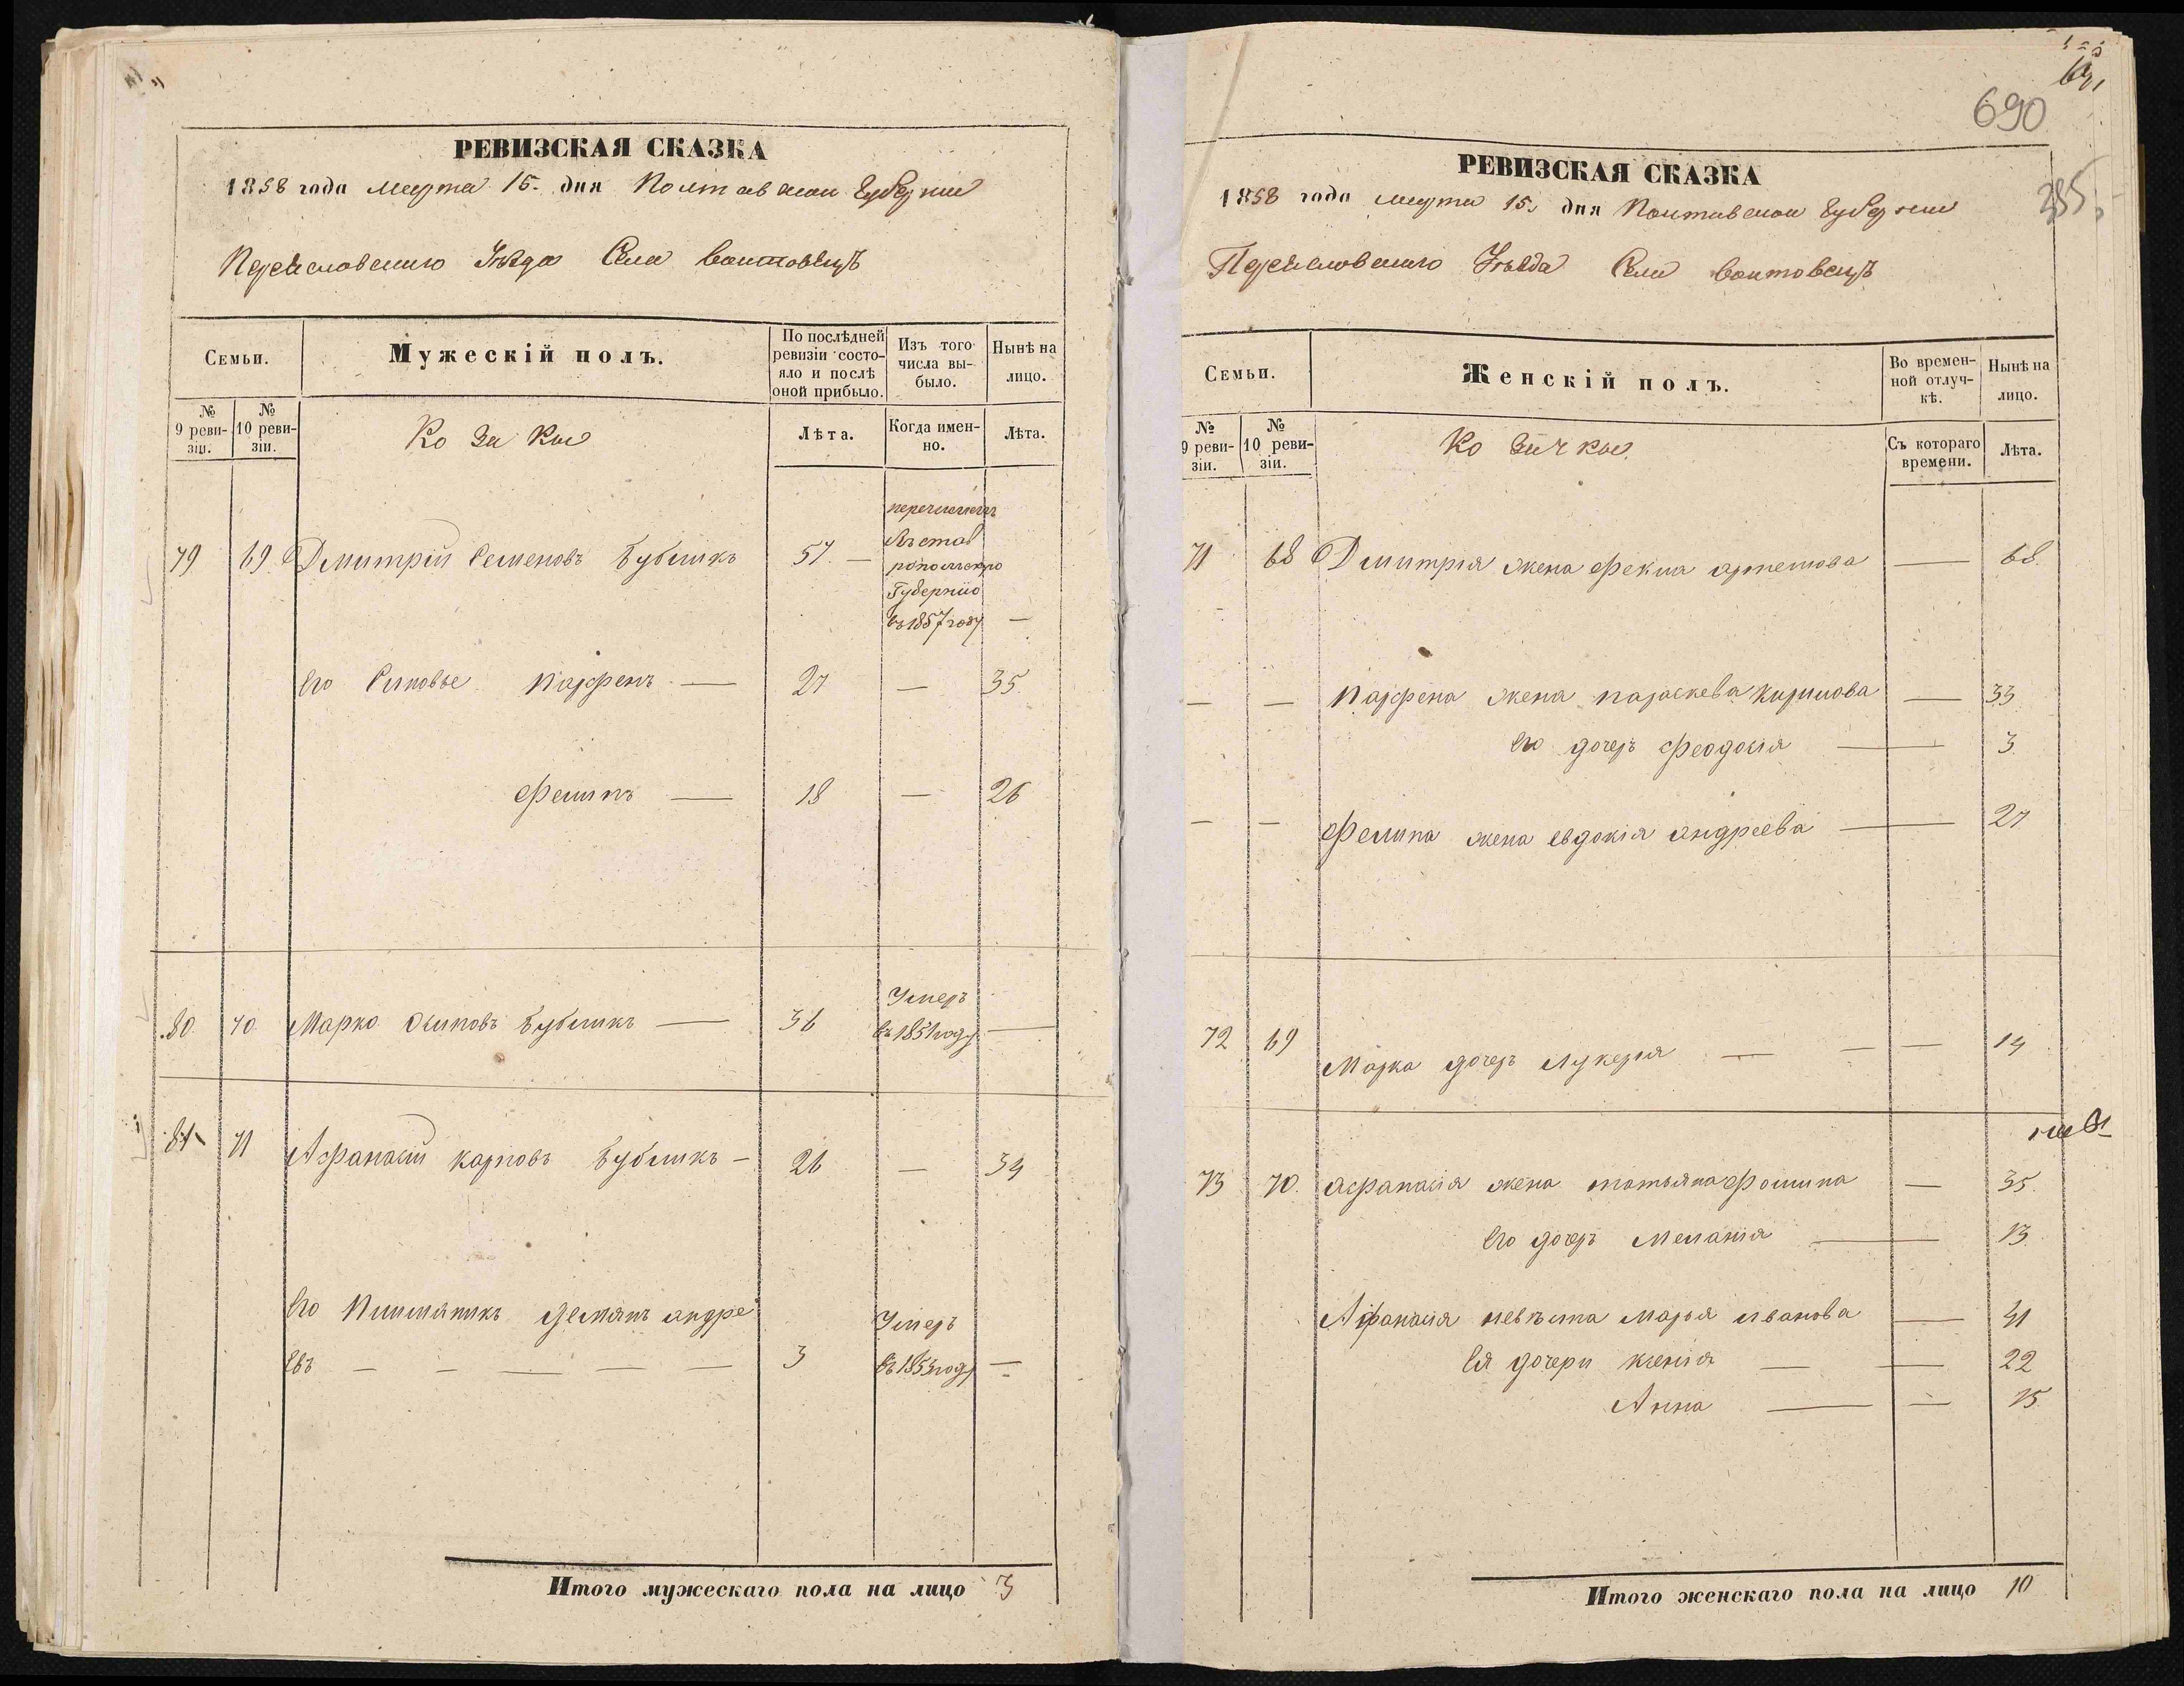 РЕВИЗСКАЯ СКАЗКА
1858 года марта 15. дня Полтавской Губернии
Переяславскаго Уѣзда Села Воитовецъ
Семьи.
Мужескій полъ.
По послѣдней ревизіи состояло и послѣ оной прибыло.
Изъ того числа выбыло.
Нынѣ на лицо.
№ 9 ревизіи.
№ 10 ревизіи.
Козаки
Лѣта.
Когда именно.
Лѣта.
перечисленъ
Въ став
ропольскую
Губернию
въ 1857 году —
79 69 Дмитрій Семеновъ Бубликъ 57. —
Его Синовье Парфенъ — 27 — 35.
Филипъ — 18 — 26
Умеръ
80. 70. Марко Осиповъ Бубликъ — 36 въ 1851 году —
81 71 Афанасій Карповъ Бубликъ — 26 — 34
Его Племяникъ Демянъ Андре Умеръ
евъ — — — — — 3 въ 1853 году —
Итого мужескаго пола на лицо 3
690
385
РЕВИЗСКАЯ СКАЗКА
1858 года марта 15. дня Полтавской Губернии
Переяславскаго Уѣзда Села Воитовецъ
Семьи.
Женскій полъ.
Во временной отлучкѣ.
Нынѣ на лицо.
№ 9 ревизіи.
№ 10 ревизіи.
Козачки.
Съ котораго времени.
Лѣта.
71 68 Дмитрія жена Фекла Артемова — 68.
— — Парфена жена Параскева Кирилова — 33
Его дочеръ Феодосія — 3.
— — Филипа жена Евдокія Андреева — 27
72 69 Марка дочеръ Лукерія — — — 14
73 70. Афанасія жена Татьяна Фомина — 35.
Его дочеръ Меланія — 13.
Афанасія невѣстка Марья Иванова — 41
Ея дочери Ксенія — — 22
Анна — — 15.
Итого женскаго пола на лицо 10